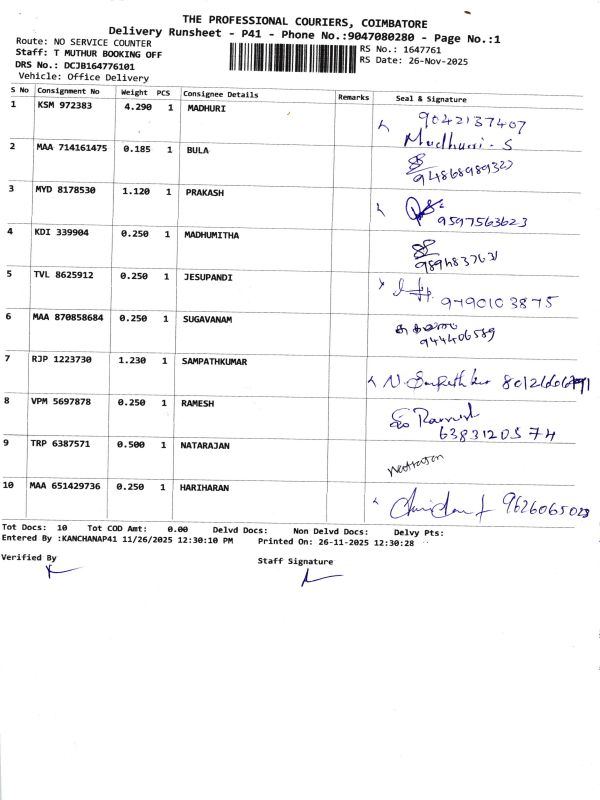 THE PROFESSIONAL COURIERS, COIMBATORE
Delivery Runsheet - P41 - Phone No.:9047080280 - Page No.:1
Route: NO SERVICE COUNTER
RS No.: 1647761
Staff: T MUTHUR BOOKING OFF
RS Date: 26-Nov-2025
DRS No.: DCJB164776101
Vehicle: Office Delivery
S No Consignment No Weight PCS Consignee Details Remarks Seal & Signature
1 KSM 972383 4.290 1 MADHURI 9042137407
Madhuri - S
2 MAA 714161475 0.185 1 BULA
3 MYD 8178530 1.120 1 PRAKASH 9597563623
4 KDI 339904 0.250 1 MADHUMITHA
5 TVL 8625912 0.250 1 JESUPANDI 9790103875
6 MAA 870858684 0.250 1 SUGAVANAM
7 RJP 1223730 1.230 1 SAMPATHKUMAR
8 VPM 5697878 0.250 1 RAMESH Ramesh
6383120574
9 TRP 6387571 0.500 1 NATARAJAN
10 MAA 651429736 0.250 1 HARIHARAN 9626065023
Tot Docs: 10 Tot COD Amt: 0.00 Delvd Docs: Non Delvd Docs: Delvy Pts:
Entered By :KANCHANAP41 11/26/2025 12:30:10 PM Printed On: 26-11-2025 12:30:28
Verified By
Staff Signature